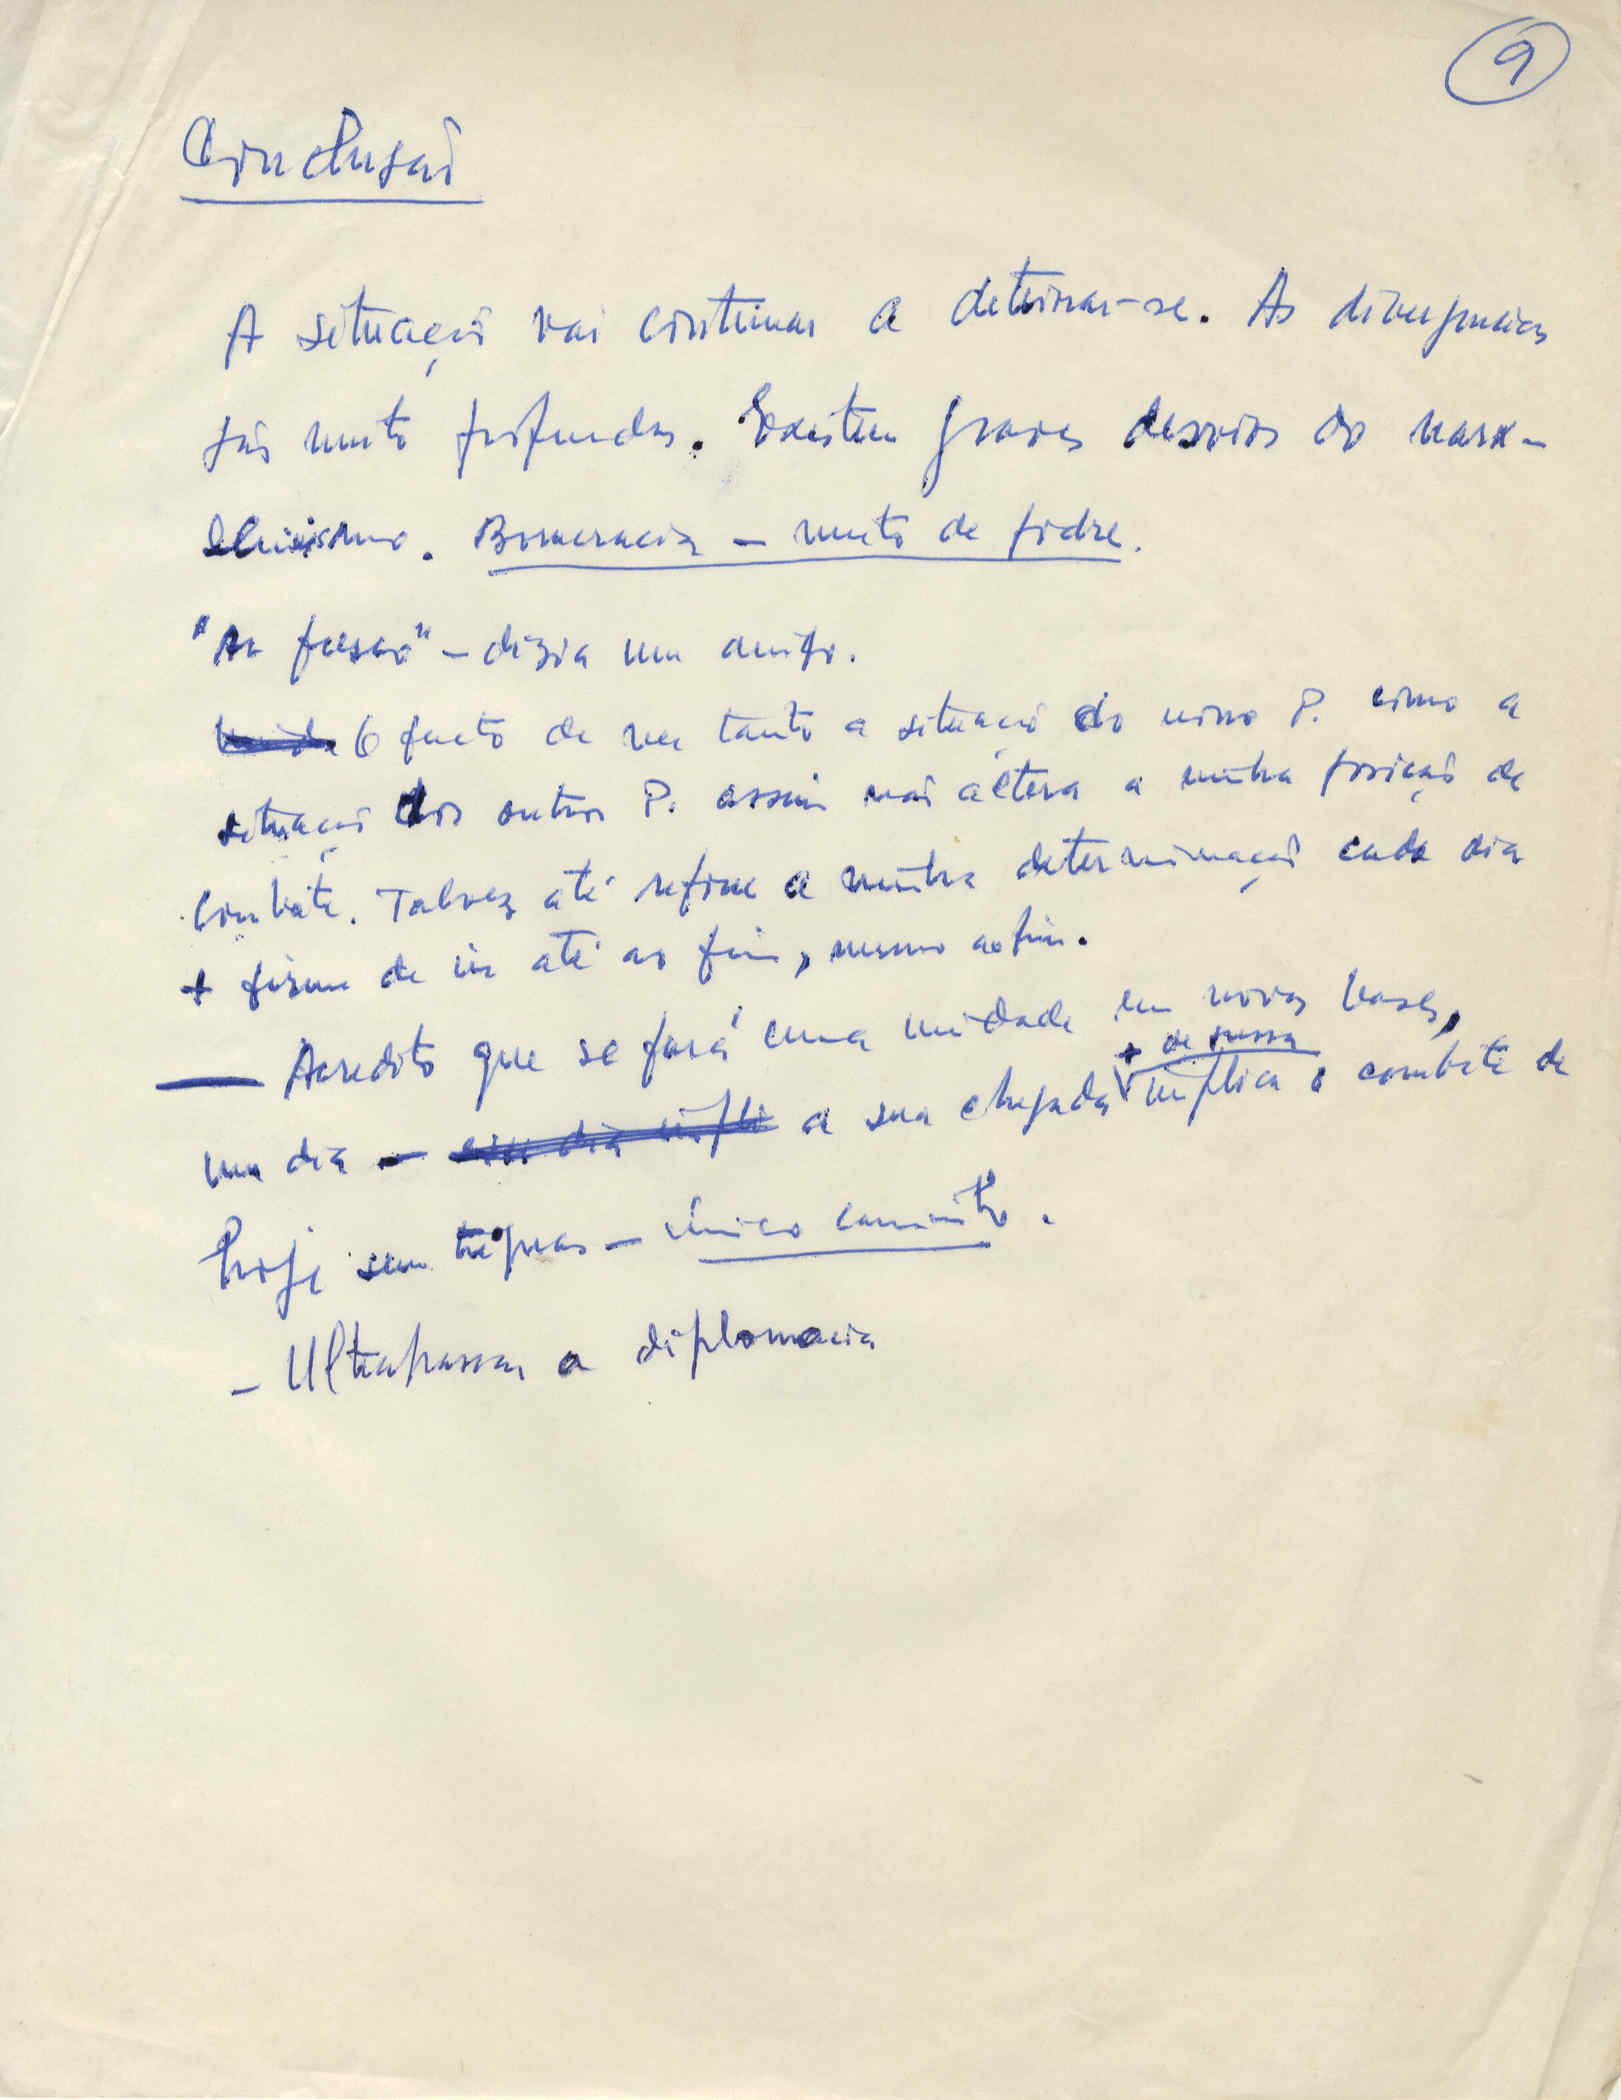 9
Conclusão
A situação vai continuar a deteriorar-se. As divergencias
são muito profundas. Existem graves desvios do marx-
leninismo. Burocracia – muito de podre.
– dizia um amigo.
O facto de ver tanto a situação do nosso P. como a
situação dos outros P. assim não altera a minha posição de
combate. Talvez até refine a minha determinação cada dia
+ firme de ir até ao fim, mesmo ao fim.
— Acredito que se fará uma unidade em novas bases,
+ depressa
um dia – a sua chegada implica o combate de
hoje sem tréguas – único caminho.
– Ultrapassar a diplomacia